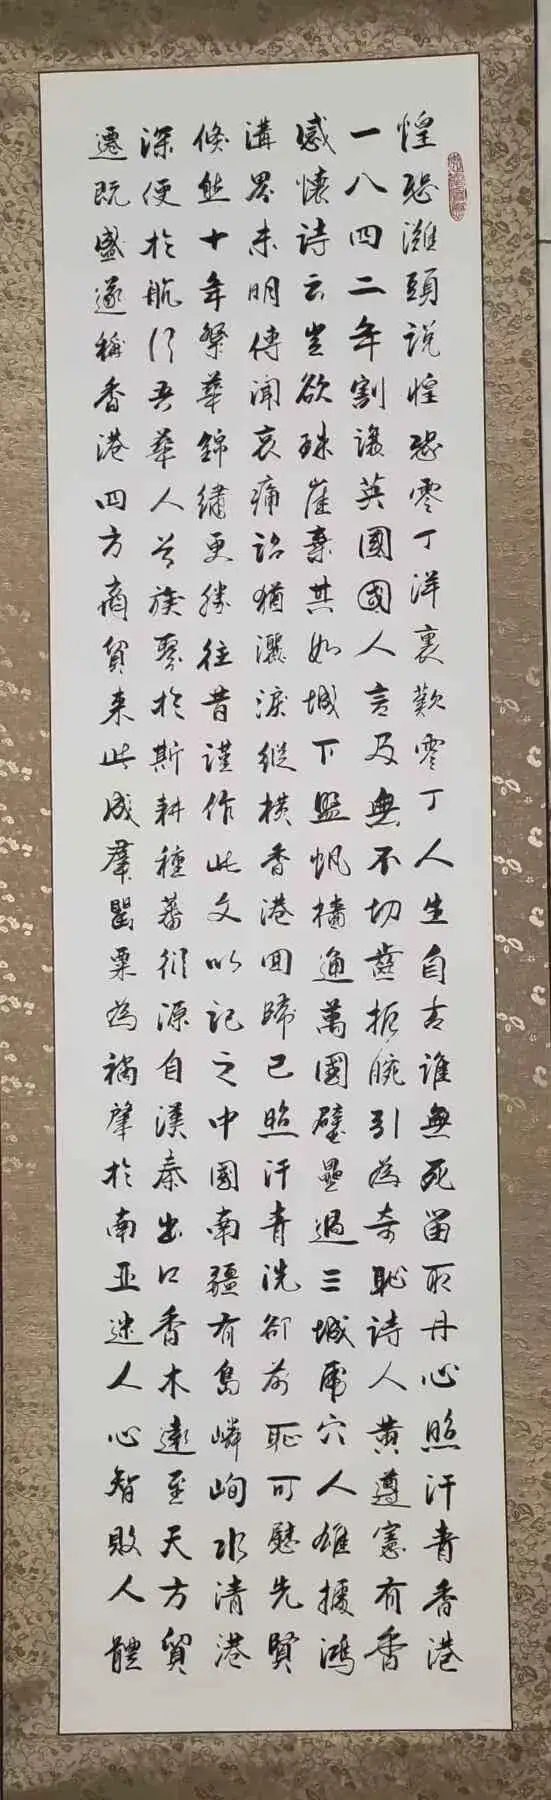 惶恐灘頭說惶恐零丁洋裏歎零丁人生自古誰無死留取丹心照汗青香港
一八四二年割讓英國國人言及無不切齒扼腕引為奇恥詩人黃遵憲有香
感懷詩云豈欲珠崖棄其如城下盟帆檣通萬國壁壘逼三城虎穴人雄據鴻
溝界未明傳聞哀痛詔猶灑淚縱橫香港回歸已照汗青洗卻前恥可慰先賢
倏然十年繁華錦繡更勝往昔謹作此文以記之中國南疆有島嶙峋水清港
深便於航行吾華人之族聚於斯耕種蕃衍源自漢秦出口香木遠至天方貿
遷既盛遂稱香港四方商貿来此成羣罌粟為禍肇於南亞迷人心智敗人體